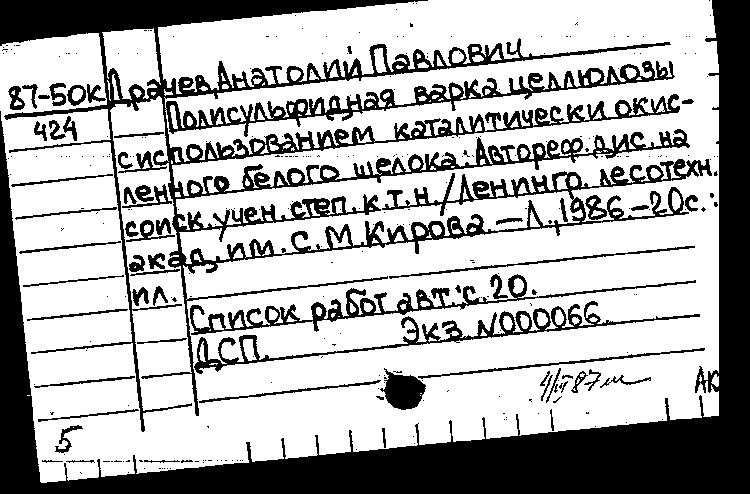 87-50к Драчев, Анатолий Павлович.
424
Полисульфидная варка целлюлозы
с использованием каталитически окис-
ленного белого щелока: Автореф. дис. на
соиск. учен. степ. к.т.н./Ленингр. лесотехн.
акад. им. С.М.Кирова.—Л., 1986.—20с.:
ил.
Список работ авт.: с. 20.
ДСП. Экз. N000066.
87
АК
5